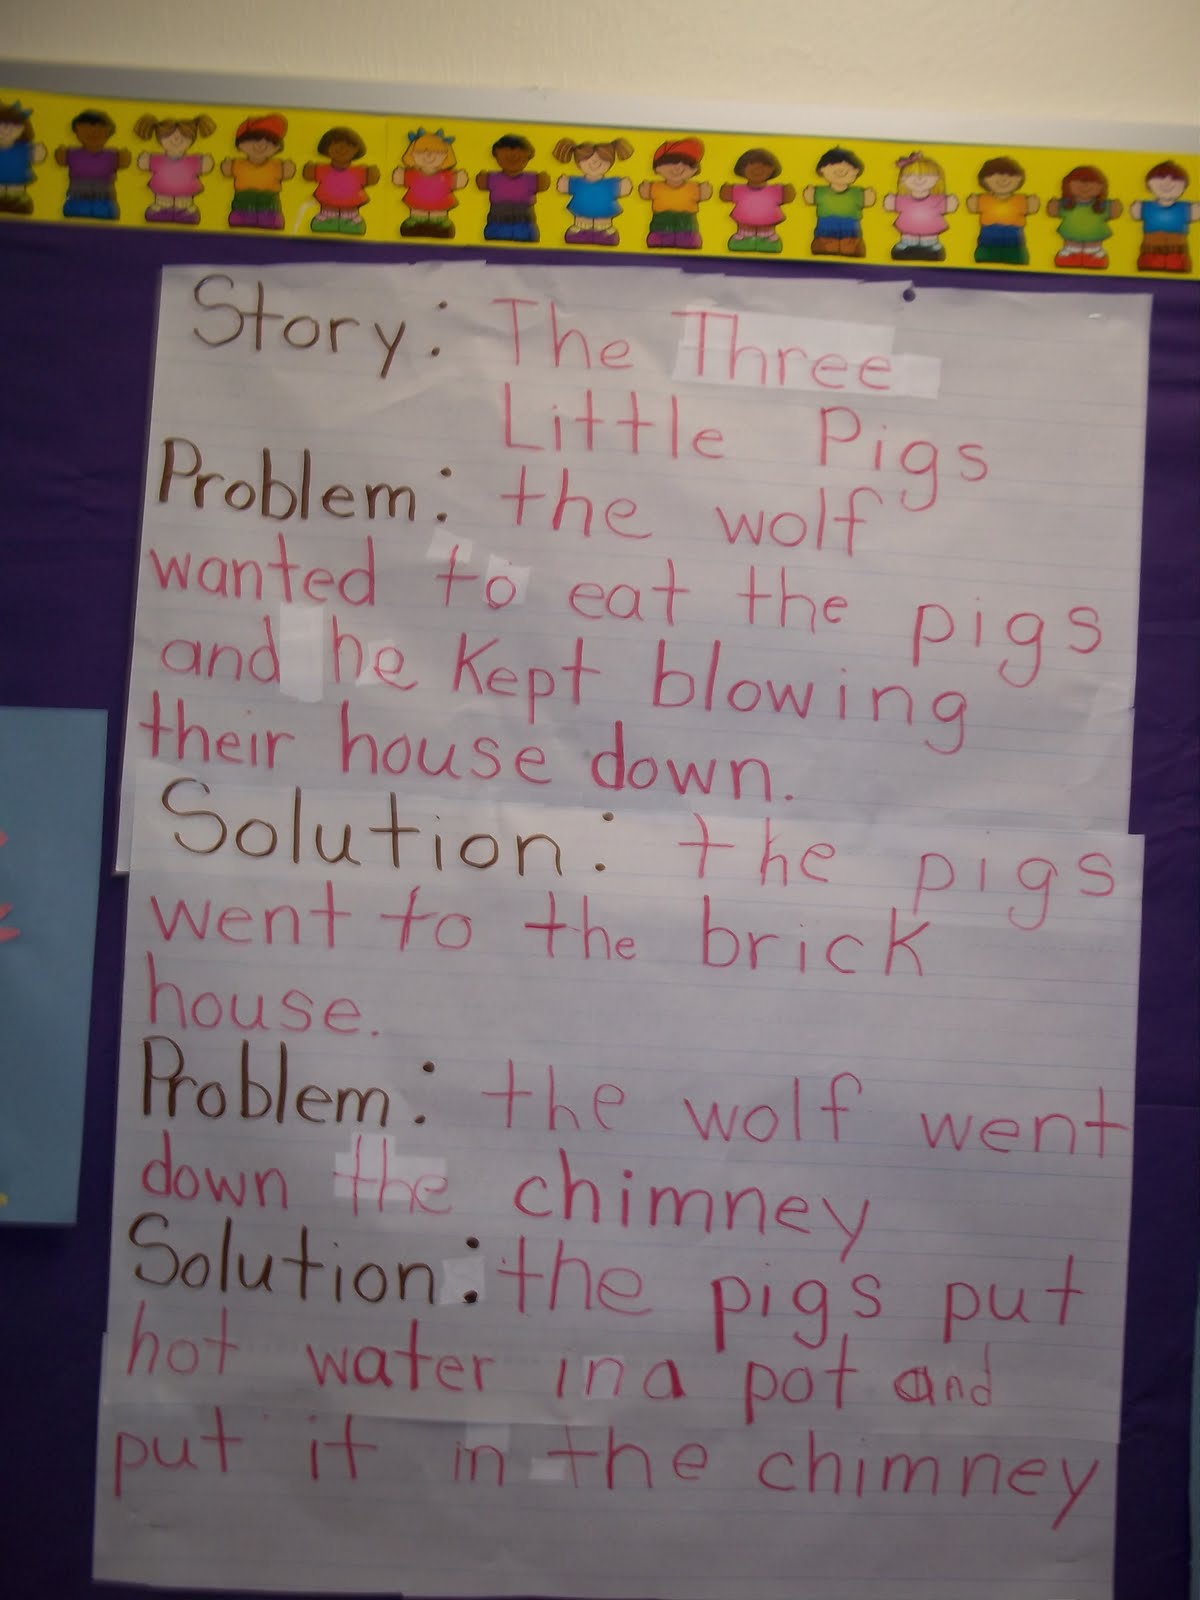 Story: The Three
Little Pigs
Problem: the wolf
wanted to eat the pigs
and he kept blowing
their house down.
Solution: the pigs
went to the brick
house.
Problem: the wolf went
down the chimney
Solution: the pigs put
hot water in a pot and
put it in the chimney